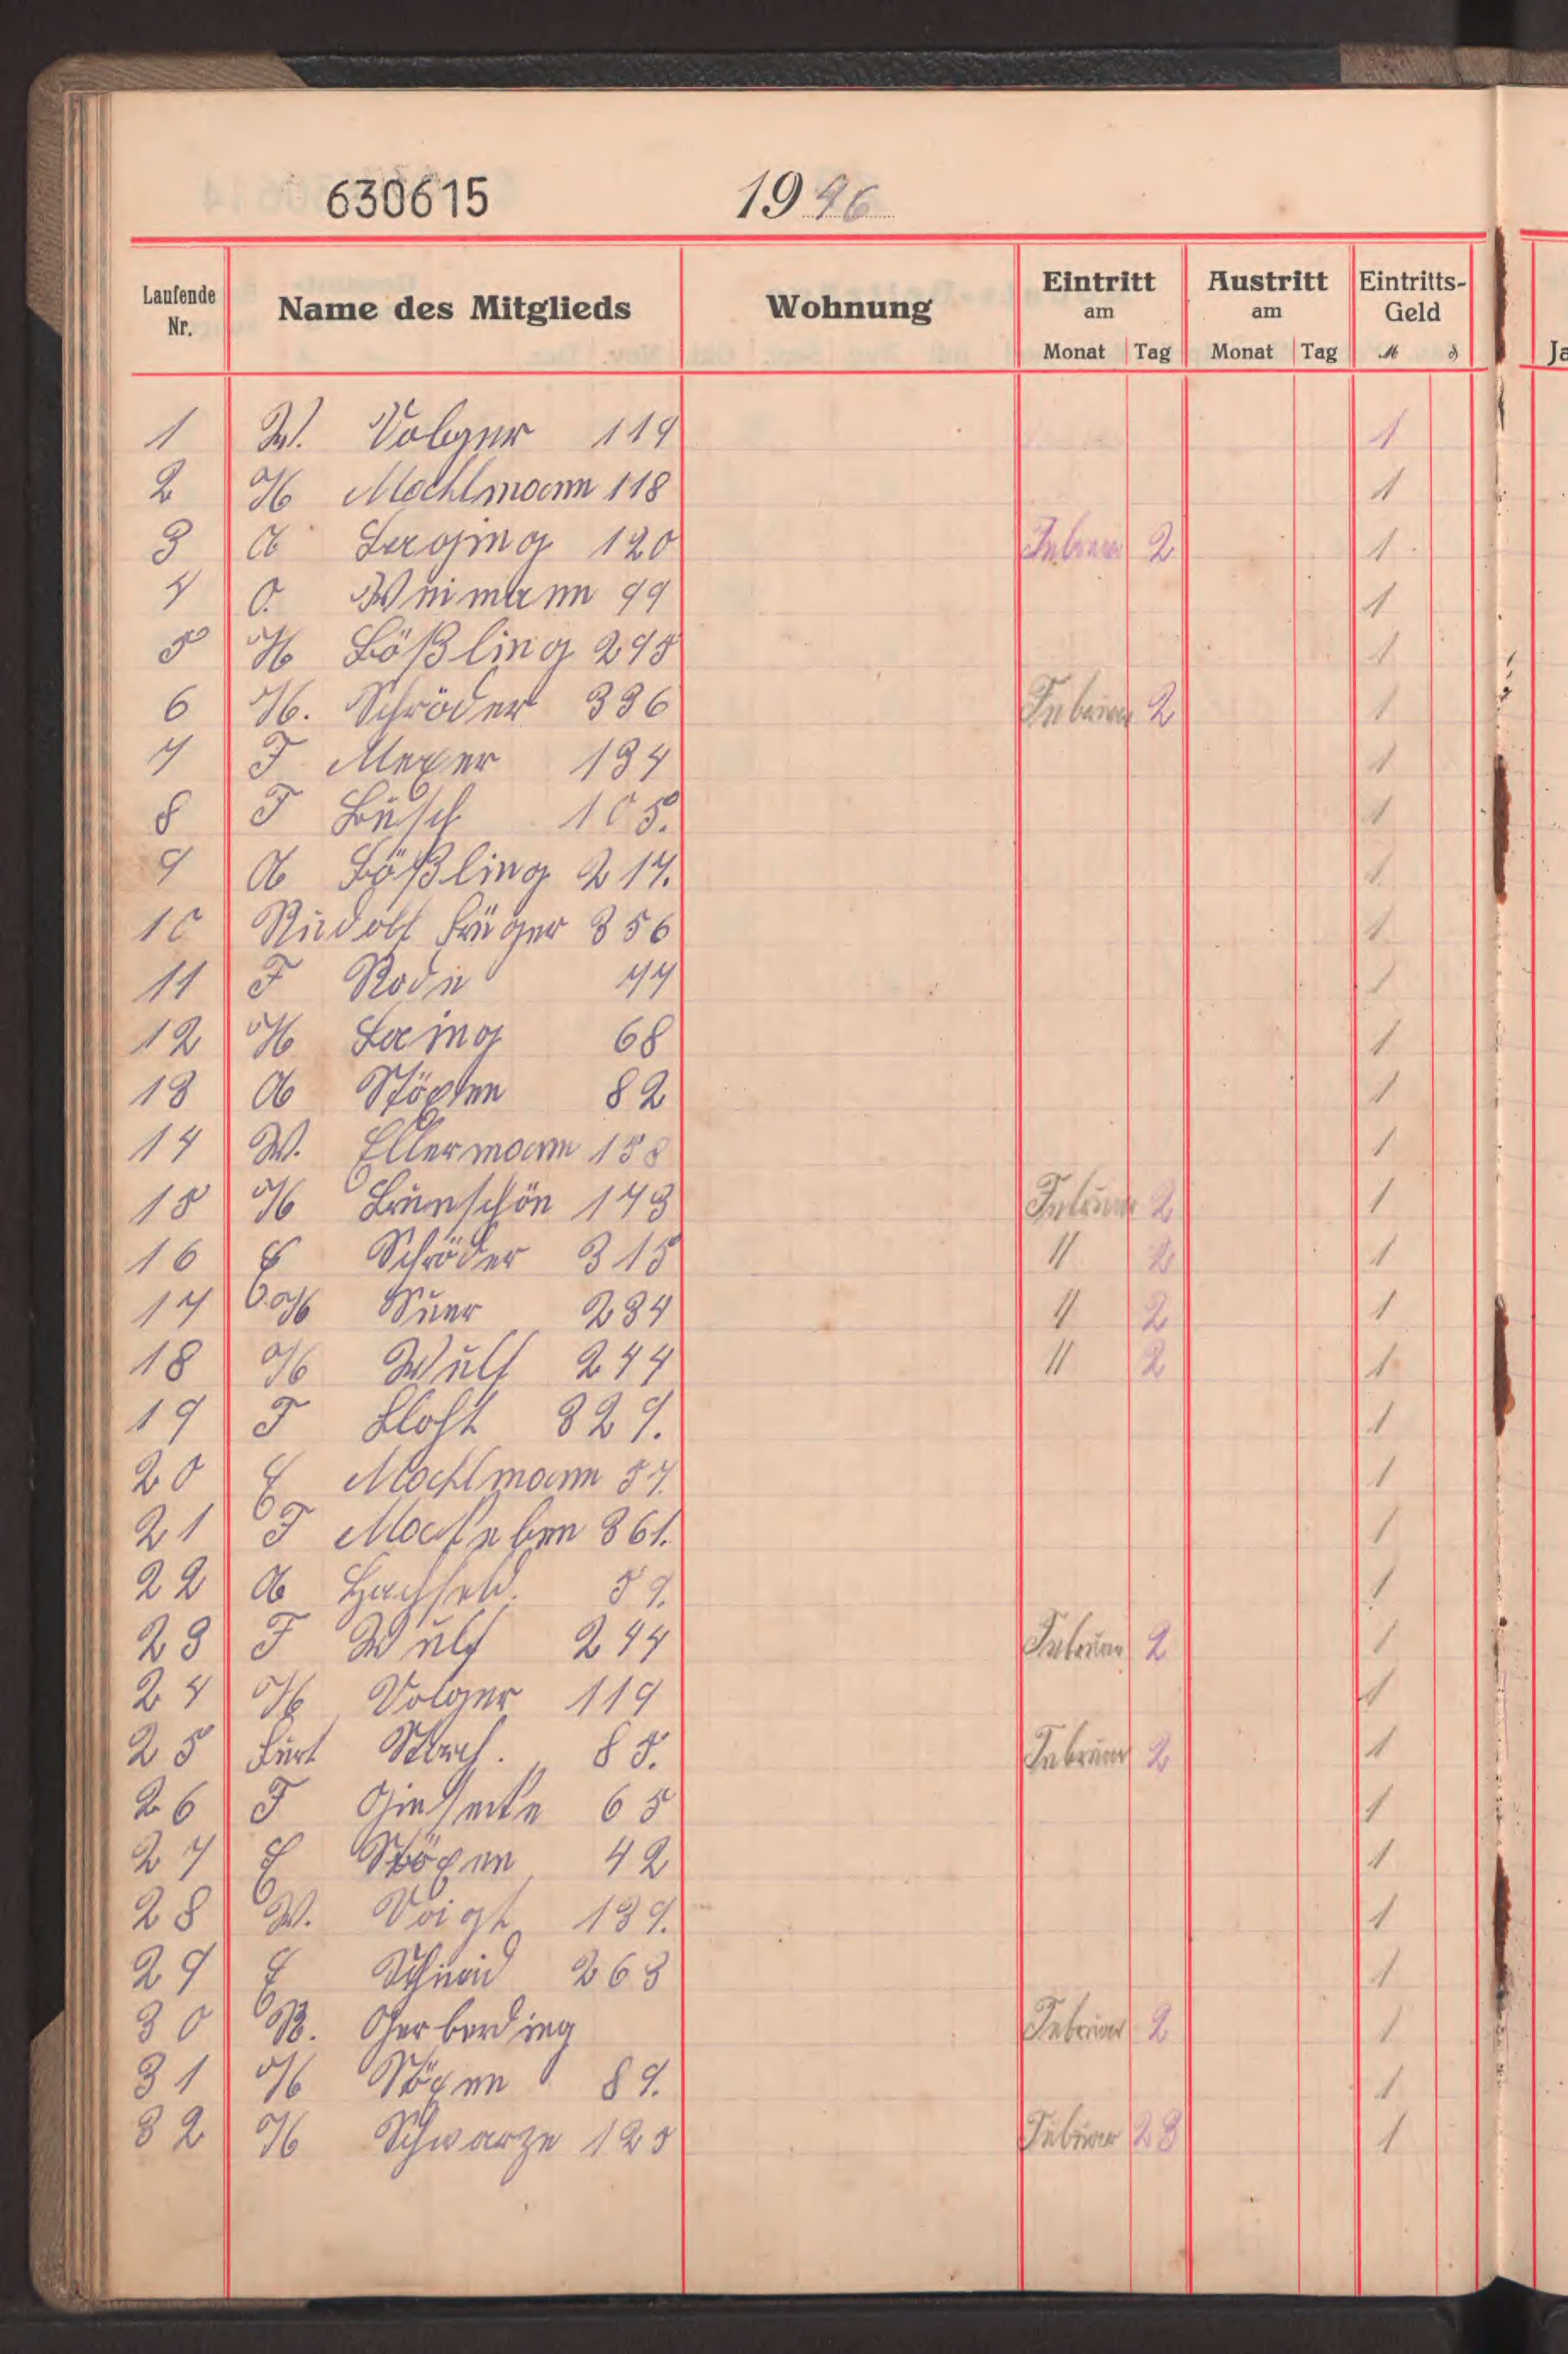 630615
1946
Laufende Nr. Name des Mitglieds Wohnung Eintritt am Monat Tag Austritt am Monat Tag Eintritts-Geld M ₰
1 W. Volger 119 1
2 H Mochlmann 118 1
3 A 120 Februar 2 1
4 O. Weimann 99 1
5 H Bößling 295 1
6 H. Schröder 336 Februar 2 1
7 F Meyer 134 1
8 F Busch 105. 1
9 A Bößling 217. 1
10 Rudolf Krüger 356 1
11 F Rode 44 1
12 H 68 1
13 A Stöxen 82 1
14 W. Ellermann 158 1
15 H Braunschön 143 Februar 2 1
16 E Schröder 315 " 2 1
17 H Suer 234 " 2 1
18 H Wulf 244 " 2 1
19 F 329. 1
20 E Mochlmann 57. 1
21 F 361. 1
22 A 59. 1
23 F Wulf 244 Februar 2 1
24 H Volger 119 1
25 Kurt 85. Februar 2 1
26 F Giesecke 65 1
27 E Stöxen 42 1
28 W. Voigt 139. 1
29 E 263 1
30 R. Gerberding Februar 2 1
31 H Stöxen 89. 1
32 H Schwarze 125 Februar 23 1
Ja